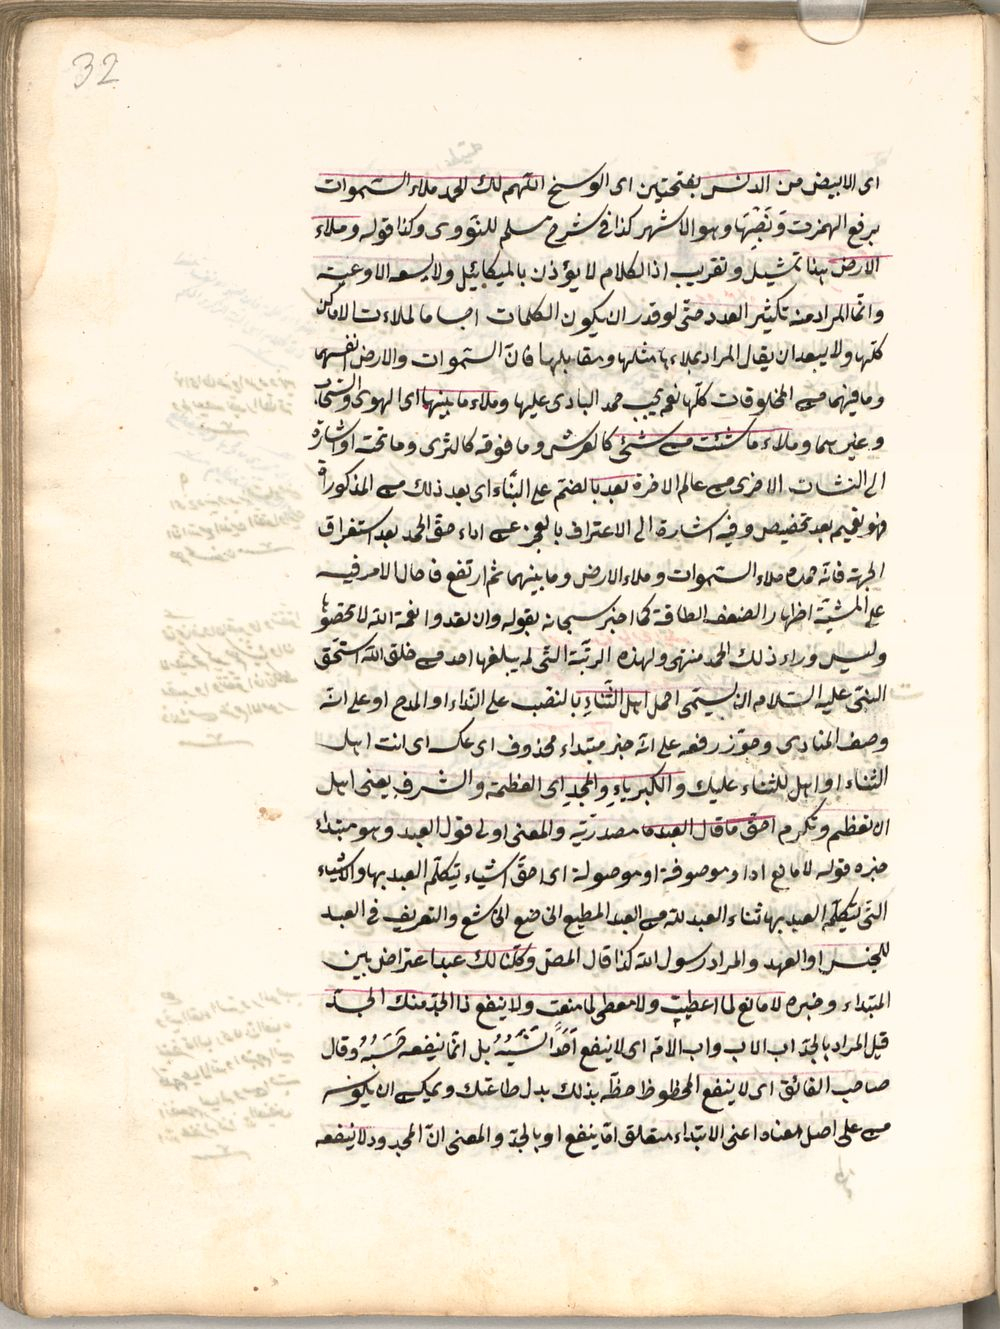 32
اى الابيض من الدنس بفتحتين اى الوسخ اللهم لك الحمد ملاء السموات
برفع الهمزت وَنَصْبِهَا وهو الاشهر كذا فى شرح مسلم للنووى وكذا قوله وملاء
الارض هذا تمثيل وتقريب اذ الكلام لا يؤذن بالميكائيل ولا يسعه الاوعية
وانما المراد منه تكثير العدد حتى لو قدر ان يكون الكلمات اجساما لملاءت الاماكن
كلها ولا يبعد ان يقال المراد بملاءها مثلها ومقابلها فان السموات والارض نفسهما
وما فيهما من المخلوقات كلها نعم يجب حمد البارى عليها وملاء ما بينهما اى الهوى والسحاب
وغيرهما وملاء ما شئت من شئ كالعرش وما فوقه كالثرى وما تحته او اشارة
الى النشات الاخرى من عالم الاخرة بعد بالضم على البناء اى بعد ذلك من المذكورات
فهو تعميم بعد تخصيص وفيه اشارة الى الاعتراف بالعجز عن اداء حق الحمد بعد استغراق
الجهد فانه حمده ملاء السموات وملاء الارض وما بينهما ثم ارتفع فاحال الامر فيه
على المشيّة اظهارا لضعف الطاقة كما اخبر سبحانه بقوله وان تعدوا نعمة الله لا تحصوها
وليس وراء ذلك الحمد منتهى ولهذه الرتبة التى لم يبلغها احد من خلق الله استحق
النبى عليه السلام ان يسمى احمل اهل الثناء بالنصب على النداء او المدح او على انه
وصف المنادى وجوّز رفعه على انه خبر مبتداء محذوف اى عكـ اى انت اهل
الثناء او اهل للثناء عليك والكبرياء والمجد اى العظمة والشرف يعنى اهل
ان تعظم وتكرم احق ما قال العبد ما مصدريّة والمعنى اولى قول العبد وهو مبتداء
خبره قوله لا مانع اداء وموصوفة او موصولة اى احق اشياء تيكلّم العبد بها والاشياء
التى يتكلم العبد بها ثناء العبد لله من العبد المطيع الخاضع الخاشع والتعريف فى العبد
للجنس او العهد والمراد رسول الله كذا قال المص وكلنا لك عبد اعتراض بين
المبتداء وخبره لا مانع لما اعطيت ولا معطى لما منعت ولا ينفع ذا الجد منك الجدّ
قيل المراد بالجدّ اب الاب واب الام اى لا ينفع اَحَدًا نَسَبُهُ بل انما نيفعه حَسَبُهُ وقال
صاحب الفائق اى لا ينفع المحظوظ حظّه بذلك بدل طاعتك ويمكن ان يكون
من على اصل معناه اعنى الابتداء متعلق اما ينفع او بالجدّ والمعنى انّ المجدود لا ينفعه